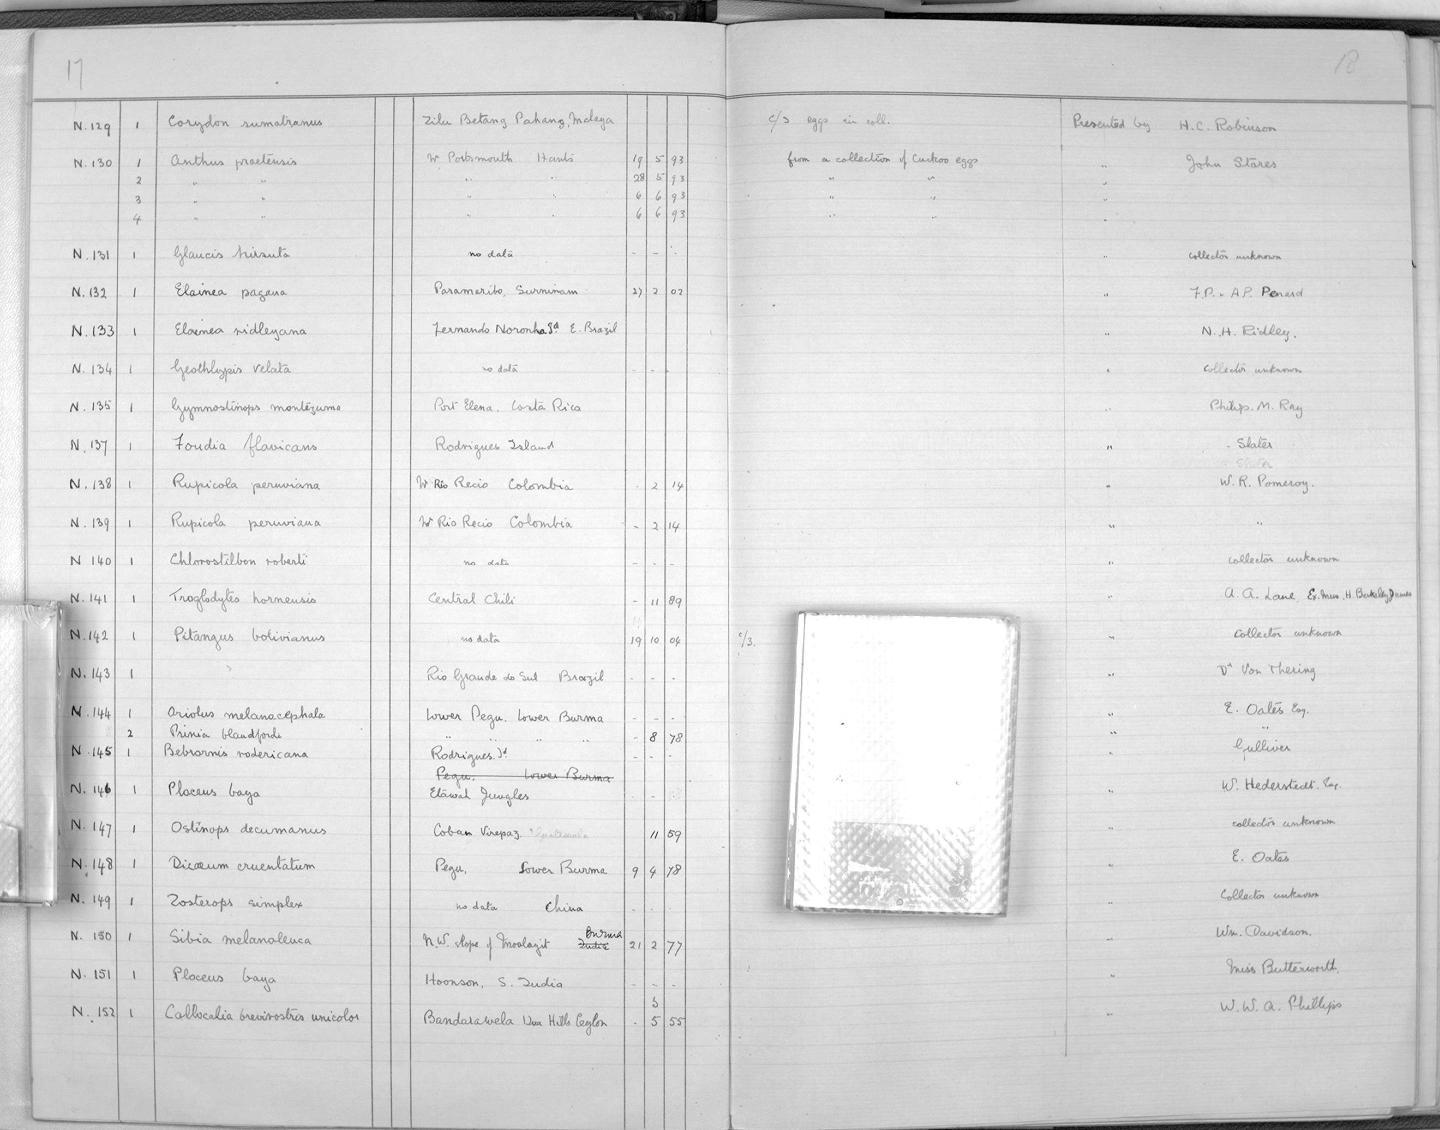 17
18
N. 129 1 Corydon sumatranus Zilu Betang Pahang, Malaya c/3 eggs in coll. Presented by H.C. Robinson
N. 130 1 Anthus pratensis Nr Portsmouth Hants 19 5 93 from a collection of Cuckoo eggs " John Stares
2 " " " " 28 5 93 " " "
3 " " " " 6 6 93 " " "
4 " " " " 6 6 93 " " "
N. 131 1 Glaucis hirsuta no data - - - " Collector unknown
N. 132 1 Elainea pagana Paramaribo, Surninam 27 2 02 " F.P. & A.P. Penard
N. 133 1 Elainea ridleyana Fernando Noronha Id. E. Brazil " N. H. Ridley.
N. 134 1 Geothlypis velata no data - - - " Collector unknown
N. 135 1 Gymnostinops montezuma Port Elena, Costa Rica " Philip. M. Ray
N. 137 1 Foudia flavicans Rodrigues Island " - Slater
Slater
N. 138 1 Rupicola peruviana Nr Rio Recio Colombia - 2 14 " W. R. Pomeroy.
N. 139 1 Rupicola peruviana Nr Rio Recio Colombia - 2 14 " "
N 140 1 Chlorostilbon roberti no data - - - " collector unknown
N. 141 1 Troglodytes hornensis Central Chili - 11 89 " A. A. Lane, Ex. Mus. H. Berkeley James
N. 142 1 Pitangus bolivianus no data 19 10 04 c/3. " Collector unknown
N. 143 1 " Rio Grande do Sul Brazil - - - " Dr Von Ihering
N. 144 1 Oriolus melanocephala Lower Pegu. Lower Burma - - - " E. Oates Esq.
2 Prinia blandfordi " " " " - 8 78 " "
N. 145 1 Bebrornis rodericana Rodrigues. Id - - - " Gulliver
Pegu. Lower Burma
N. 146 1 Ploceus baya Etawah Jungles - - - " W. Hederstedt. Esq.
N. 147 1 Ostinops decumanus Coban Verepaz, Guatemala 11 59 " collector unknown
N. 148 1 Dicaeum cruentatum Pegu, Lower Burma 9 4 78 " E. Oates
N. 149 1 Zosterops simplex no data China - - - " Collector unknown
Burma
N. 150 1 Sibia melanoleuca N.W. slope of Moolayit India 21 2 77 Wm. Davidson.
N. 151 1 Ploceus baya Hoonson, S. India - - - " Miss Butterworth.
5
N. 152 1 Collocalia brevirostris unicolor Bandarawela Uva Hills Ceylon - 5 55 " W. W. A. Phillips